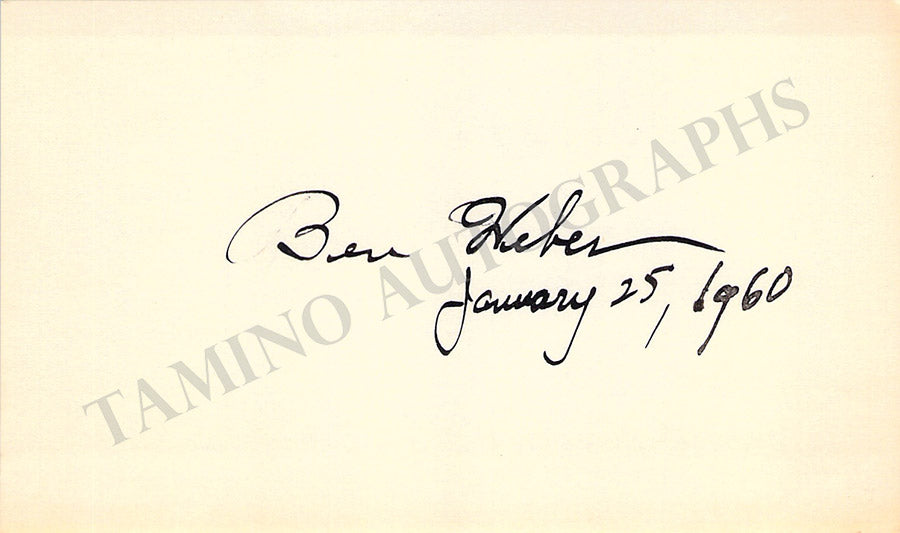 Ben Weber
January 25, 1960
TAMINO AUTOGRAPHS